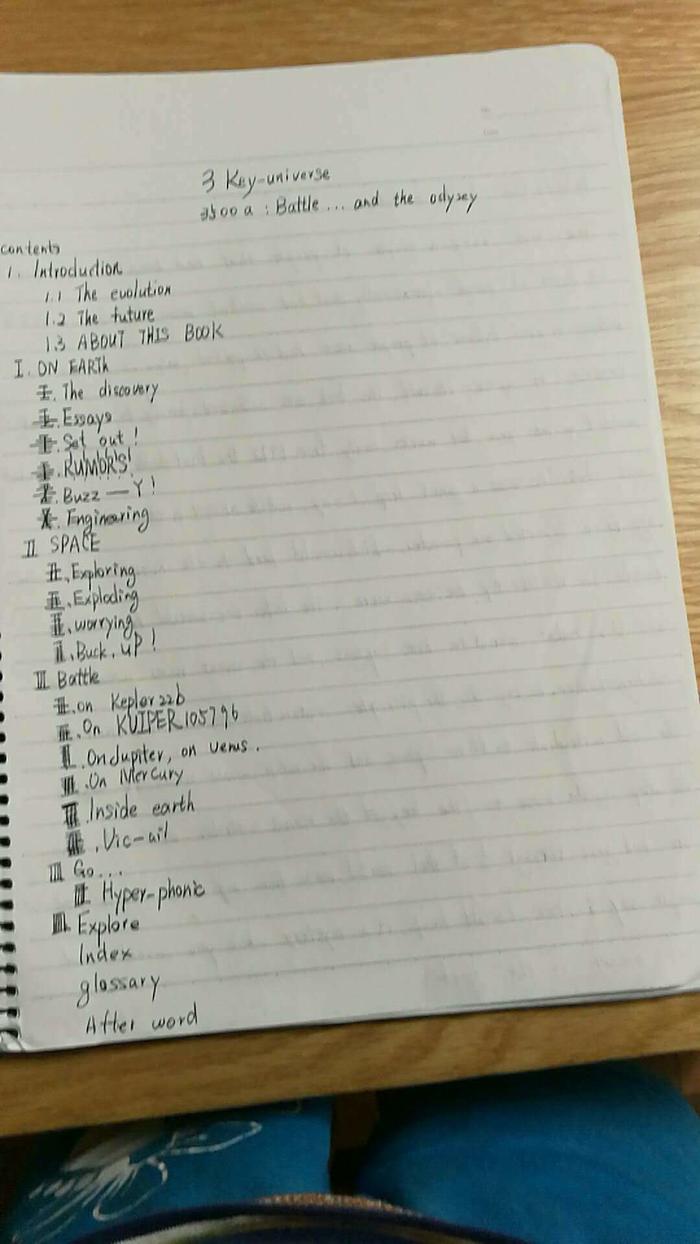 3 Key-universe
3500 a : Battle ... and the odysey
contents
1. Introduction
1.1 The evolution
1.2 The future
1.3 ABOUT THIS BOOK
I. ON EARTH
The discovery
Essays
Set out !
RUMORS!
Buzz — Y !
Enginearing
II SPACE
Exploring
Exploding
worrying
Buck, UP !
III Battle
on Kepler 22b
On KUIPER 105796
On Jupiter, on venus .
On Mercury
Inside earth
Vic-ail
IIII Go...
Hyper-phonic
Explore
Index
glossary
After word